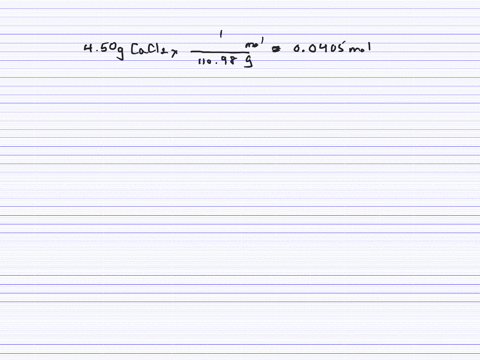 4.50g CaCl2 x 1 mol / 110.98 g = 0.0405 mol